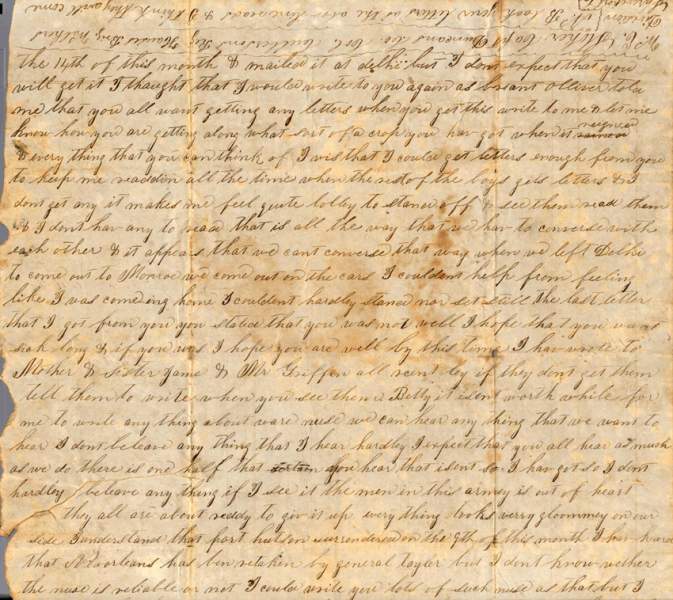 the 14th of this month & mailed it at delhi but I dont expect that you
will get it I thought that I would write to you again as briant olliver told
me that you all want getting any letters when you get this write to me & let me
know how you are getting along what sort of a crop you hav got when it
& every thing that you can think of I wish that I could get letters enough from you
to keep me readdin all the time when the rest of the boys gets letters & I
dont get any it makes me feel quote lolley to stand off & see them read them
& I dont hav any to read that is all the way that we hav to converse with
each other & it appears that we cant converse that way when we left Delhi
to come out to Monroe we come out on the cars I couldent help from feeling
like I was comeing home I couldent hardley stand nor set still The last letter
that I got from you you stated that you was not well I hope that you want
sick long & if you was I hope you are well by this time I hav wrote to
Mother & sister Jame & Mr Griffen all recntley if they dont get them
tell them to write when you see them Betty it isent worth while for
me to write any thing about ware nuse we can hear any thing that we want to
hear I dont beleave any thing that I hear hardley I expect that you all hear as much
as we do there is one half that you hear that isent so I hav got so I dont
hardley beleave any thing if I see it the men in this armey is out of heart
they all are about reddy to giv it up every thing looks verry gloommey on our
side I understand that port hutson surrendered on the 9th of this month I hav heard
that N orleans has ben retaken by general taylor but I dont know wether
the nuse is reliable or not I could write you lots of such nuse as that but I